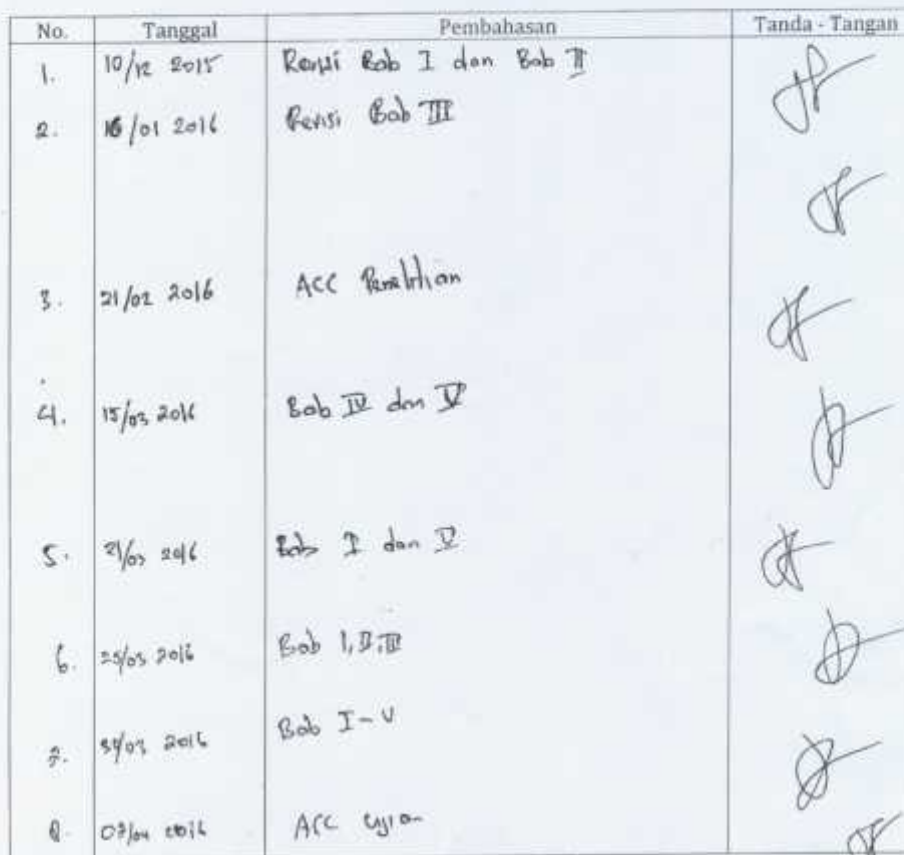 No. Tanggal Pembahasan Tanda - Tangan
1. 10/12 2015 Revisi Bab I dan Bab II
2. 16/01 2016 Revisi Bab III
3. 21/02 2016 ACC Penelitian
4. 15/03 2016 Bab IV dan V
5. 21/03 2016 Bab I dan V
6. 25/03 2016 Bab I, II, III
7. /03 2016 Bab I - V
8. 07/04 2016 ACC Ujian